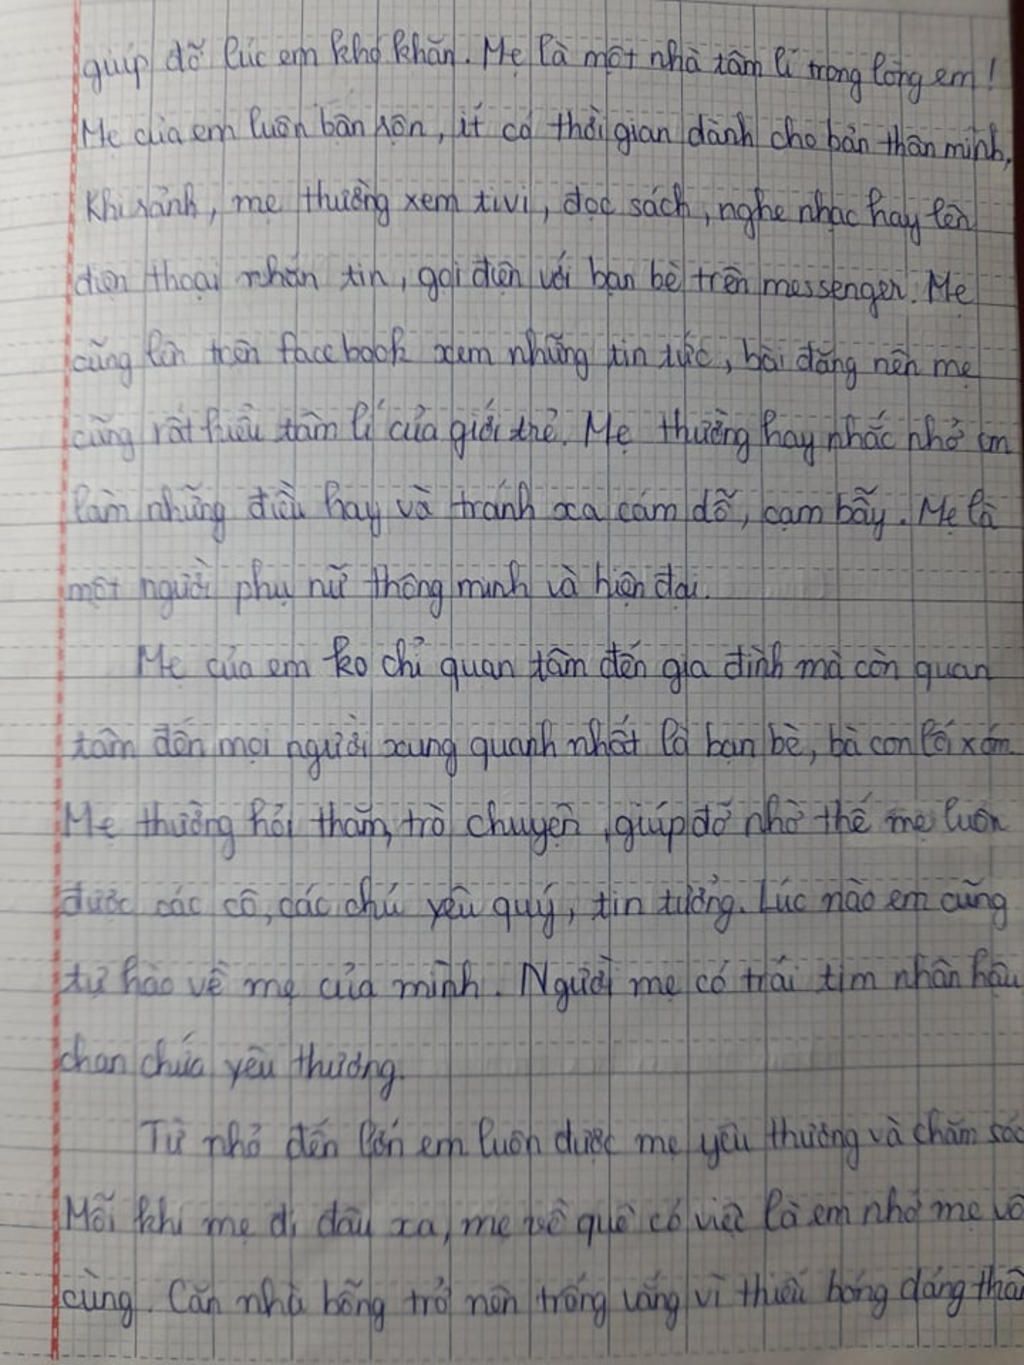 giúp đỡ lúc em khó khăn. Mẹ là một nhà tâm lí trong lòng em!
Mẹ của em luôn bận rộn, ít có thời gian dành cho bản thân mình,
Khi rảnh, mẹ thường xem tivi, đọc sách, nghe nhạc hay lên
điện thoại nhắn tin, gọi điện với bạn bè trên messenger. Mẹ
cũng lên trên facebook xem những tin tức, bài đăng nên mẹ
cũng rất hiểu tâm lí của giới trẻ. Mẹ thường hay nhắc nhở em
làm những điều hay và tránh xa cám dỗ, cạm bẫy. Mẹ là
một người phụ nữ thông minh và hiện đại.
Mẹ của em ko chỉ quan tâm đến gia đình mà còn quan
tâm đến mọi người xung quanh nhất là bạn bè, bà con lối xóm.
Mẹ thường hỏi thăm, trò chuyện, giúp đỡ nhờ thế mẹ luôn
được các cô, các chú yêu quý, tin tưởng. Lúc nào em cũng
tự hào về mẹ của mình. Người mẹ có trái tim nhân hậu
chan chứa yêu thương.
Từ nhỏ đến lớn em luôn được mẹ yêu thương và chăm sóc
Mỗi khi mẹ đi đâu xa, mẹ về quê có việc là em nhớ mẹ vô
cùng. Căn nhà bỗng trở nên trống vắng vì thiếu bóng dáng thân